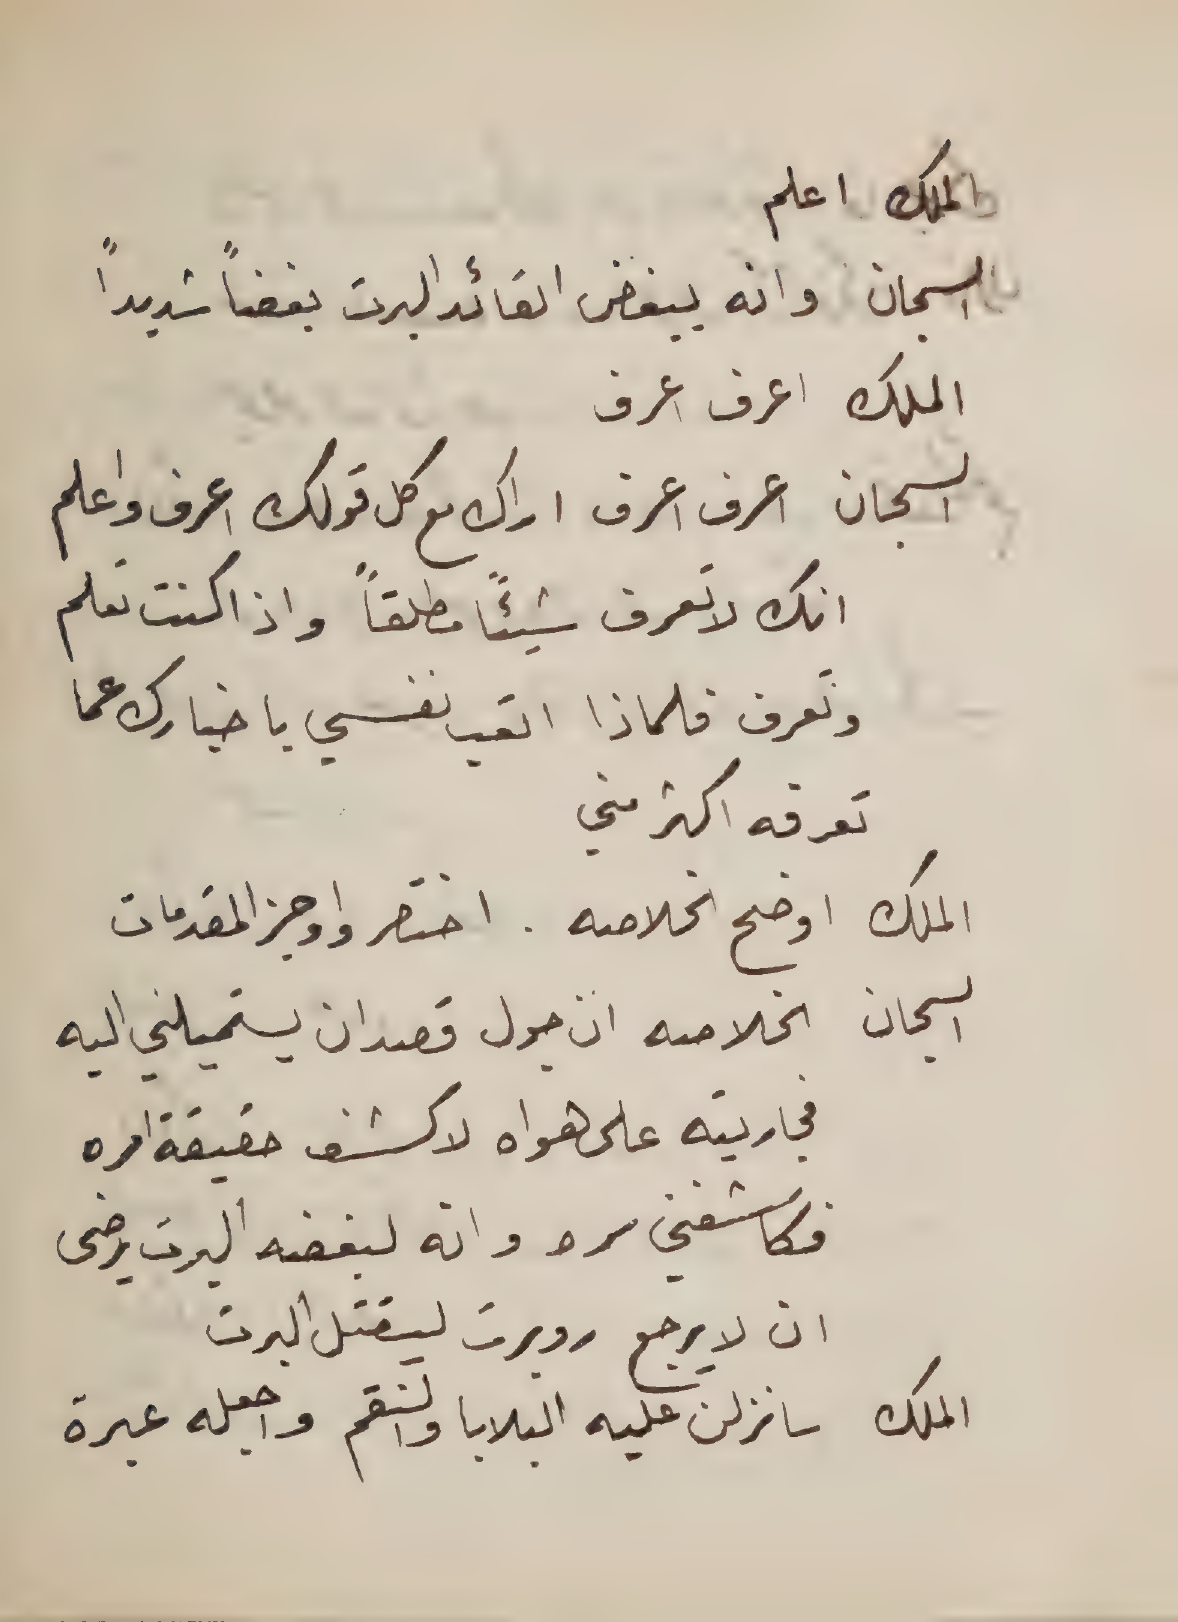 الملك اعلم
السجان وانه يبغض القائد البرت بغضاً شديداً
الملك اعرف اعرف
السجان اعرف اعرف اراك مع كل قولك اعرف واعلم
انك لا تعرف شيئاً مطلقاً واذا كنت تعلم
وتعرف فلماذا اتعب نفسي باخبارك عما
تعرفه اكثر مني
الملك اوضح الخلاصه . اختصر واوجز المقدمات
السجان الخلاصه ان جول قصد ان يستميلني اليه
فجاريته على هواه لاكشف حقيقة امره
فكاشفني سره وانه لبغضه البرت يرضى
ان لا يرجع روبرت ليقتل البرت
الملك سانزلن عليه البلايا والنقم واجعله عبرة